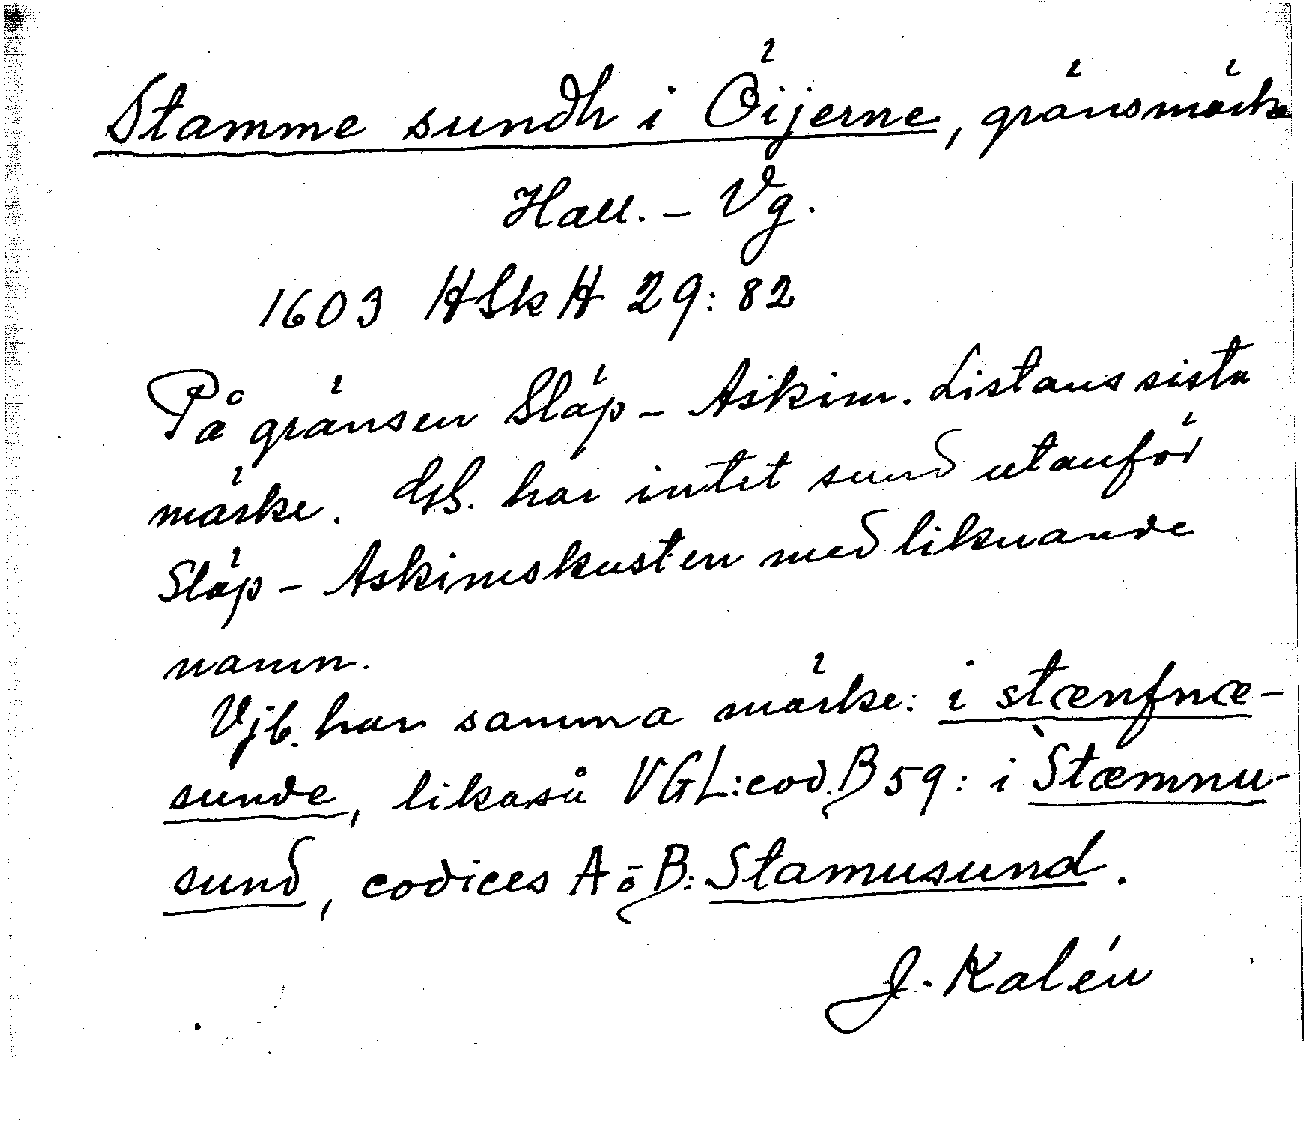 Stamme sundh i Öijerne, gränsmärke
Hall. - Vg.
1603 HSkH 29:82
På gränsen Släp - Askim. Listans sista
märke. GS. har intet sund utanför
Släp - Askimskusten med liknande
namn.
Vjb. har samma märke: i stænfnæ-
sunde, likaså VGL: cod. B 59: i Stæmnu-
sund, codices A o B: Stamusund.
J. Kalén